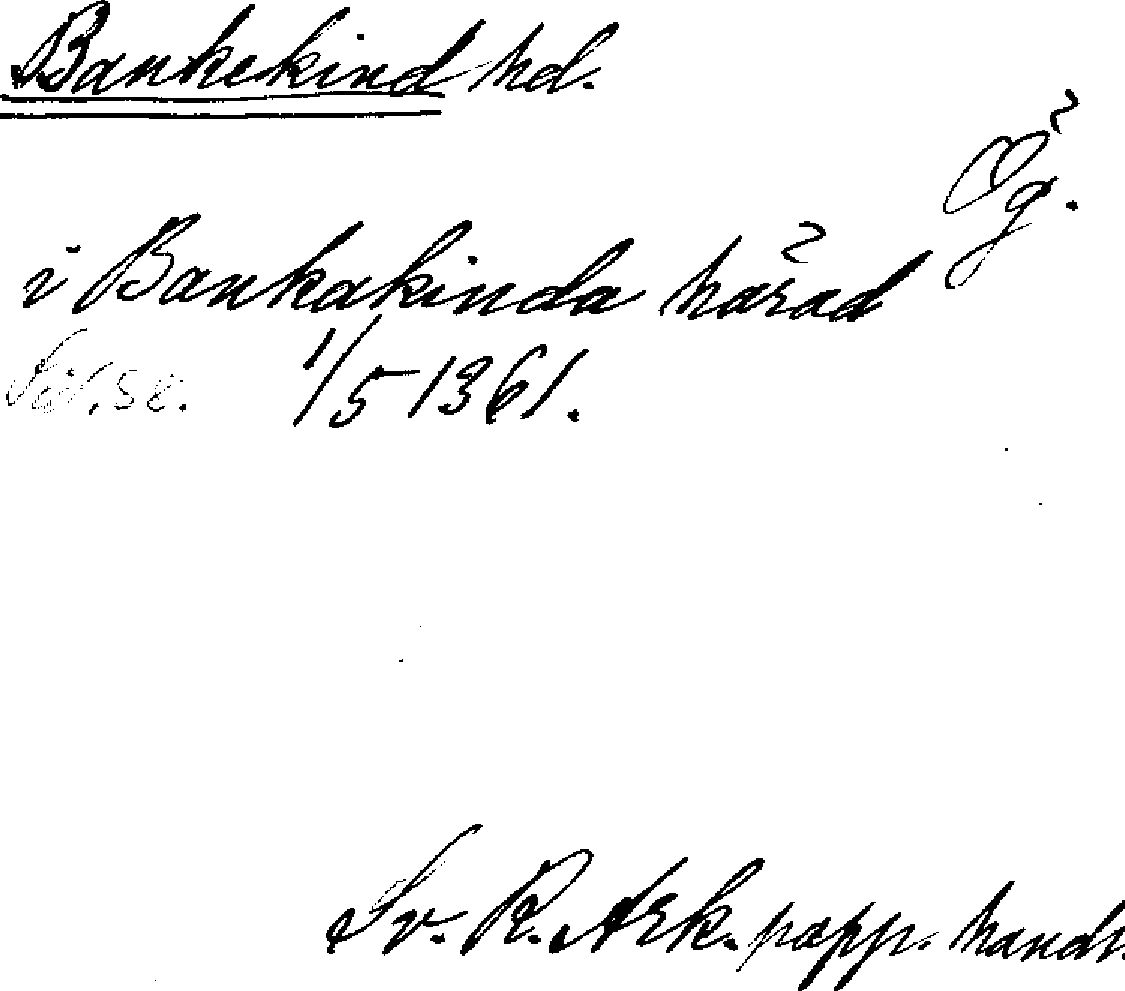 Bankekind hd.
Ög.
i Bankakinda härad
1/5 1361.
Sv. R. Ark. papp. handl.